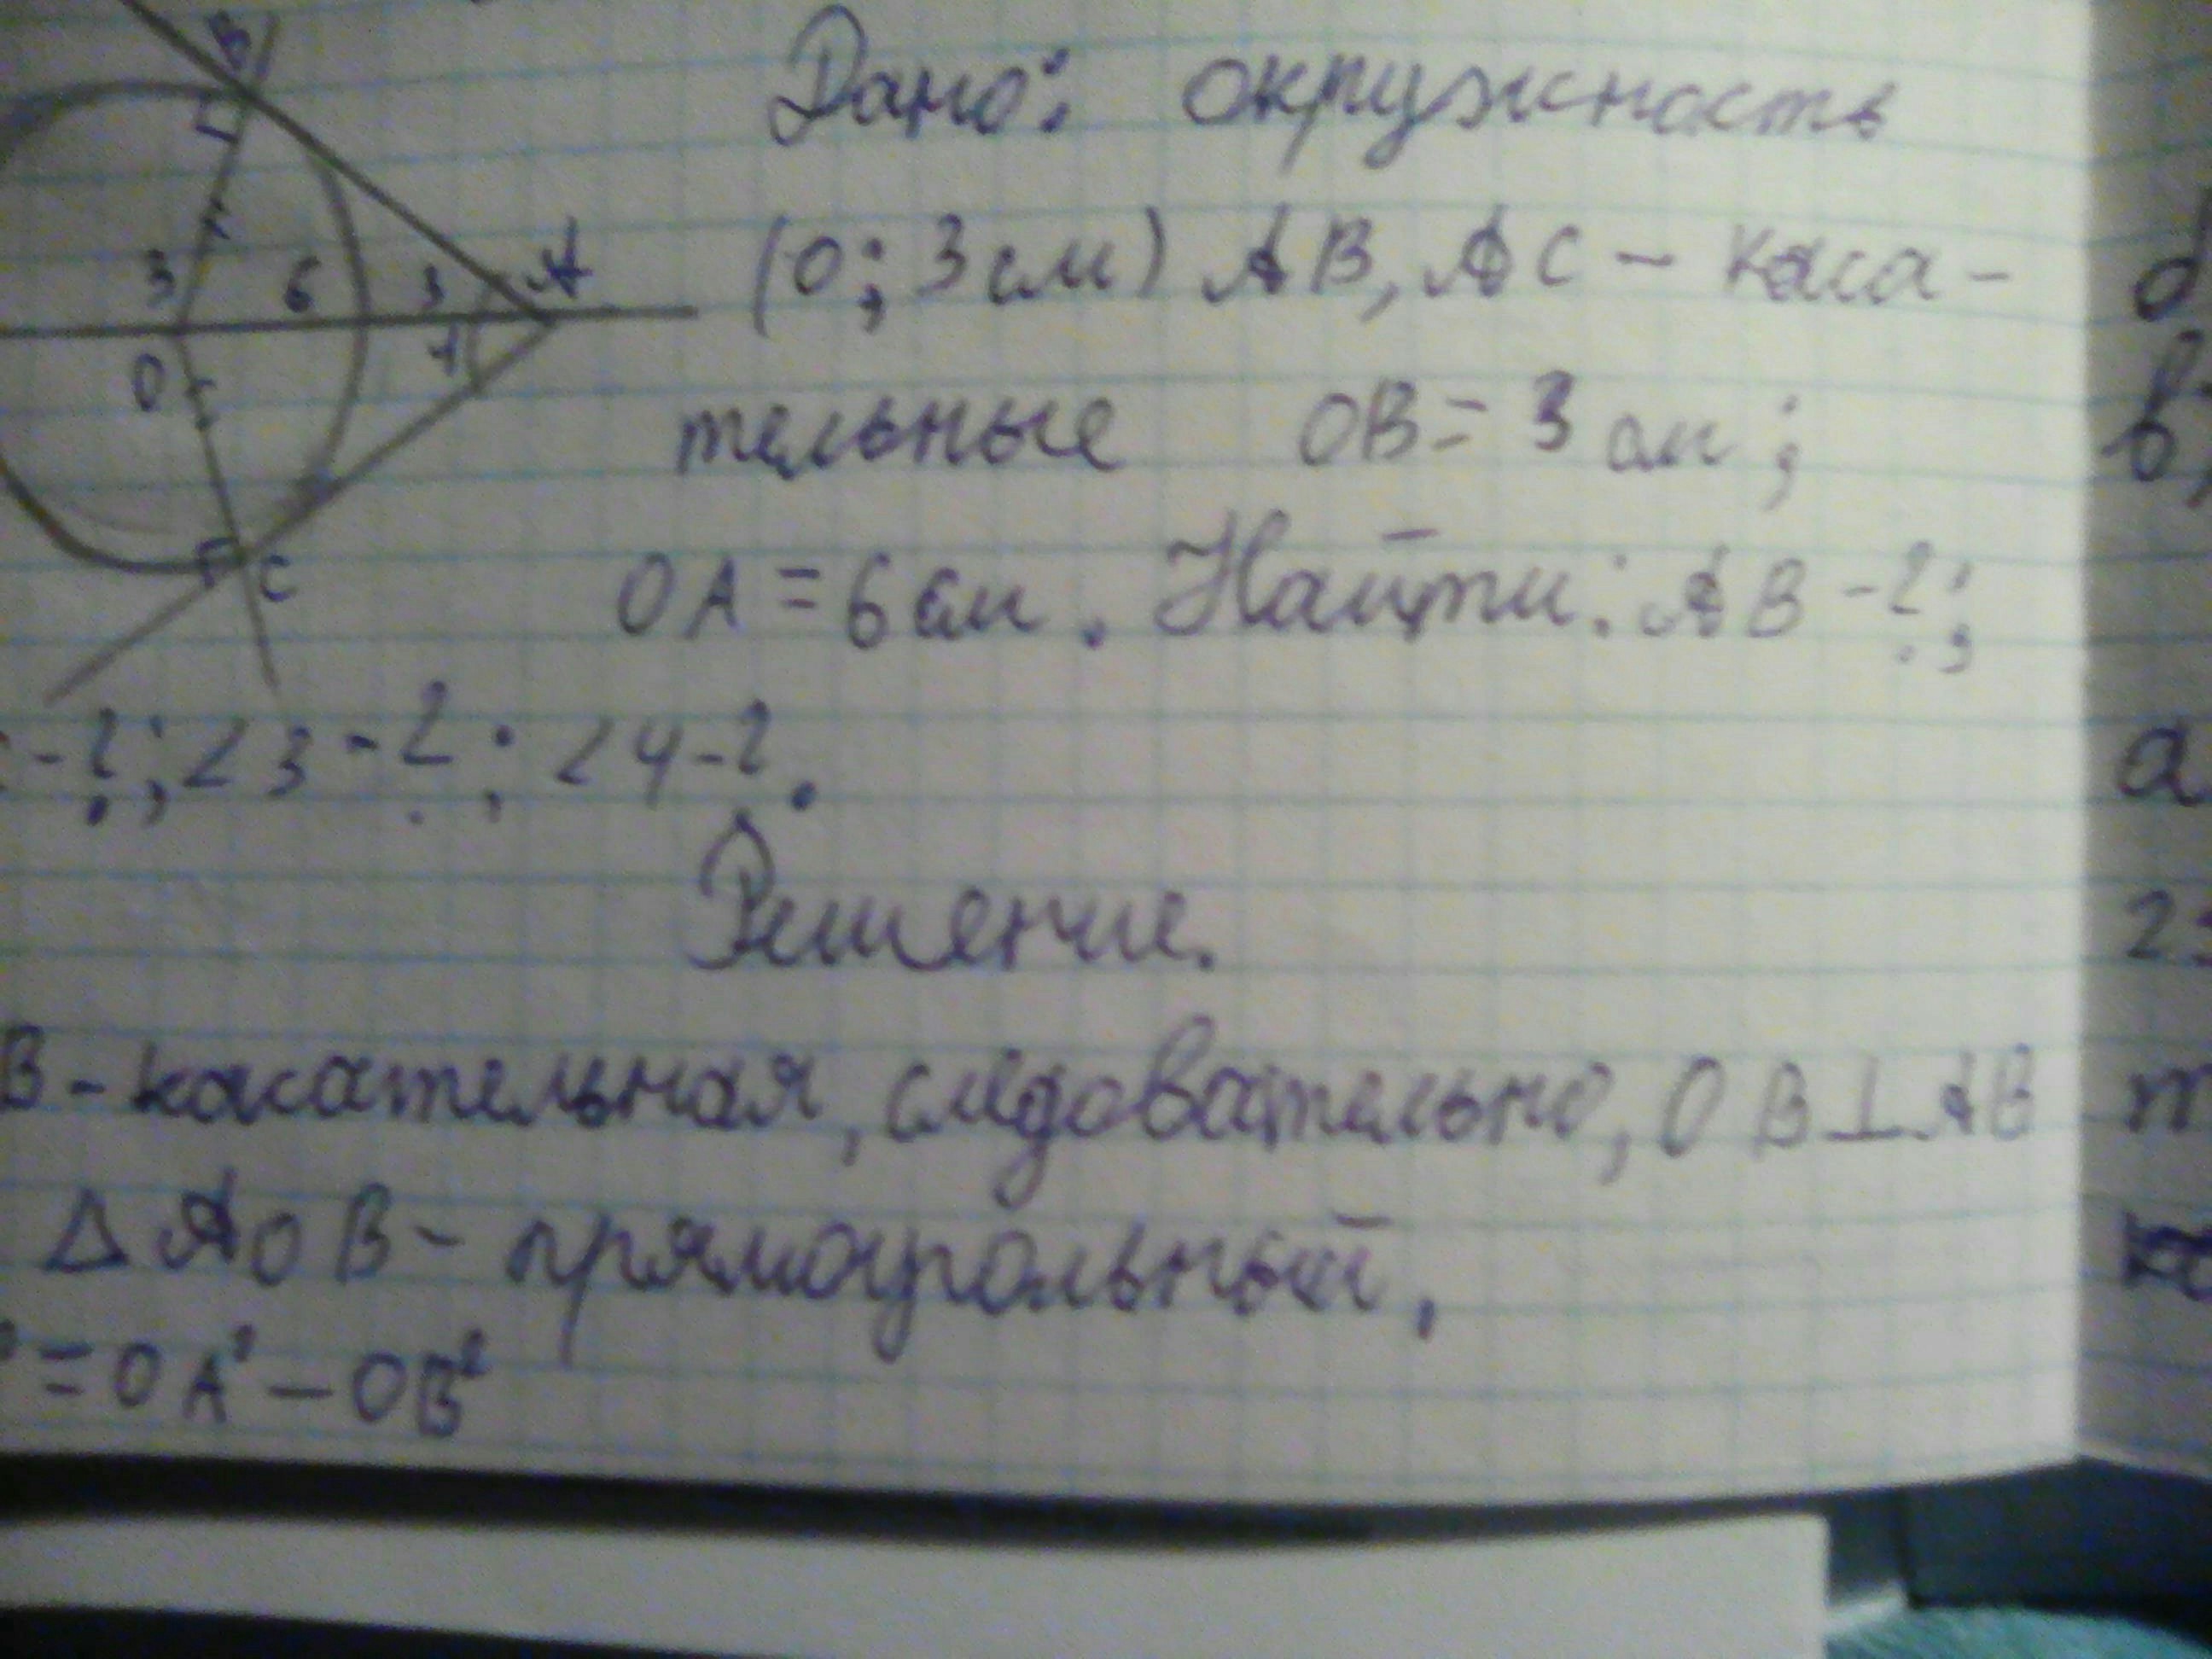 B
Дано: окружность
3 6 3 A
(0; 3 см) AB, AC - каса-
4
O
тельные OB = 3 см;
C
OA = 6 см. Найти: AB - ?;
- ?; ∠3 - ?; ∠4 - ?.
Решение.
B - касательная, следовательно, OB ⊥ AB
Δ AOB - прямоугольный,
² = OA² - OB²